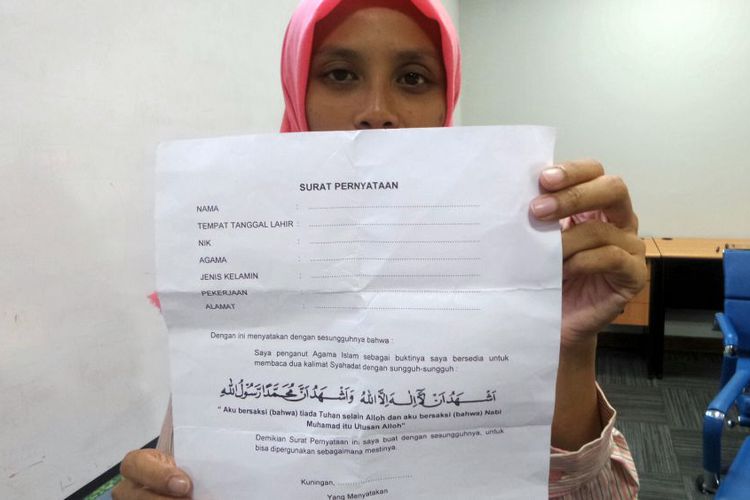 SURAT PERNYATAAN
NAMA : ........................................
TEMPAT TANGGAL LAHIR : ........................................
NIK : ........................................
AGAMA : ........................................
JENIS KELAMIN : ........................................
PEKERJAAN : ........................................
ALAMAT : ........................................
Dengan ini menyatakan dengan sesungguhnya bahwa :
Saya penganut Agama Islam sebagai buktinya saya bersedia untuk
membaca dua kalimat Syahadat dengan sungguh-sungguh :
اَشْهَدُ اَنْ لَا اِلٰهَ اِلَّا اللهُ وَاَشْهَدُ اَنَّ مُحَمَّدًا رَسُوْلُ اللهِ
" Aku bersaksi (bahwa) tiada Tuhan selain Alloh dan aku bersaksi (bahwa) Nabi
Muhamad itu Utusan Alloh"
Demikian Surat Pernyataan ini saya buat dengan sesungguhnya, untuk
bisa dipergunakan sebagaimana mestinya.
Kuningan, ........................
Yang Menyatakan